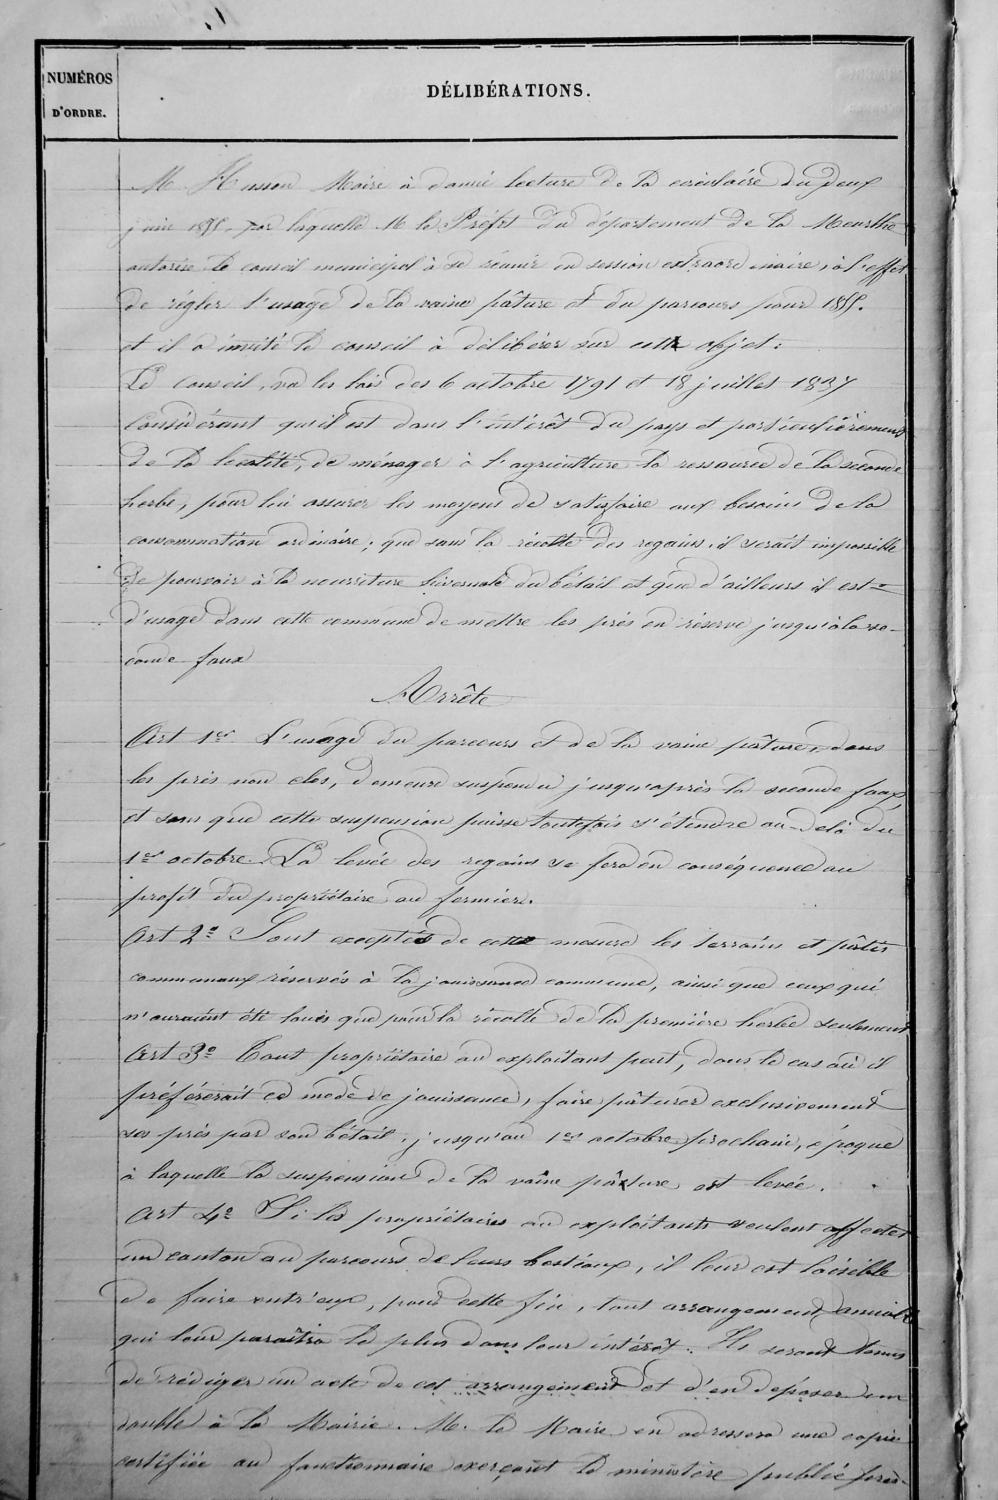 NUMÉROS
D'ORDRE.
DÉLIBÉRATIONS.
M. Husson Maire à donné lecture de la circulaire du deux
juin 1855. par laquelle M le Préfet du département de la Meurthe
autorise le conseil municipal à se réunir en session extraordinaire, à l'effet
de régler l'usage de la vaine pâture et du parcours pour 1855.
et il a invité le conseil à délibérer sur cette objet :
Le Conseil, vu les lois des 6 octobre 1791 et 18 juillet 1837
Considérant qu'il est dans l'intérêt du pays et particulièrement
de la localité, de ménager à l'agriculture la ressource de la seconde
herbe, pour lui assurer les moyens de satisfaire aux besoins de la
consommation ordinaire ; que sans la récolte des regains, il serait impossible
de pourvoir à la nourriture hivernale du bétail et que d'ailleurs il est
d'usage dans cette commune de mettre les prés en réserve jusqu'à la se-
conde faux
Arrête
Art 1er L'usage du parcours et de la vaine pâture, dans
les prés non clos, demeure suspendu jusqu'après la seconde faux,
et sans que cette suspension puisse toutefois s'étendre au-delà du
1er octobre. La levée des regains se fera en conséquence au
profit du propriétaire ou fermier.
Art 2e Sont exceptés de cette mesure les terrains et pâtis
communaux réservés à la jouissance commune, ainsi que ceux qui
n'auraient été loués que pour la récolte de la première herbe seulement
Art 3e Tout propriétaire ou exploitant peut, dans le cas où il
préférerait ce mode de jouissance, faire pâturer exclusivement
ses prés par son bétail, jusqu'au 1er octobre prochain, époque
à laquelle la suspension de la vaine pâture est levée.
Art 4e Si les propriétaires ou exploitants veulent affecter
un canton au parcours de leurs bestiaux, il leur est loisible
de faire entr'eux, pour cette fin, tout arrangement annuel
qui leur paraîtra le plus dans leur intérêt. Ils seront tenus
de rédiger un acte de cet arrangement et d'en déposer un
double à la Mairie. M. le Maire en adressera une copie
certifiée au fonctionnaire exerçant le ministère public près